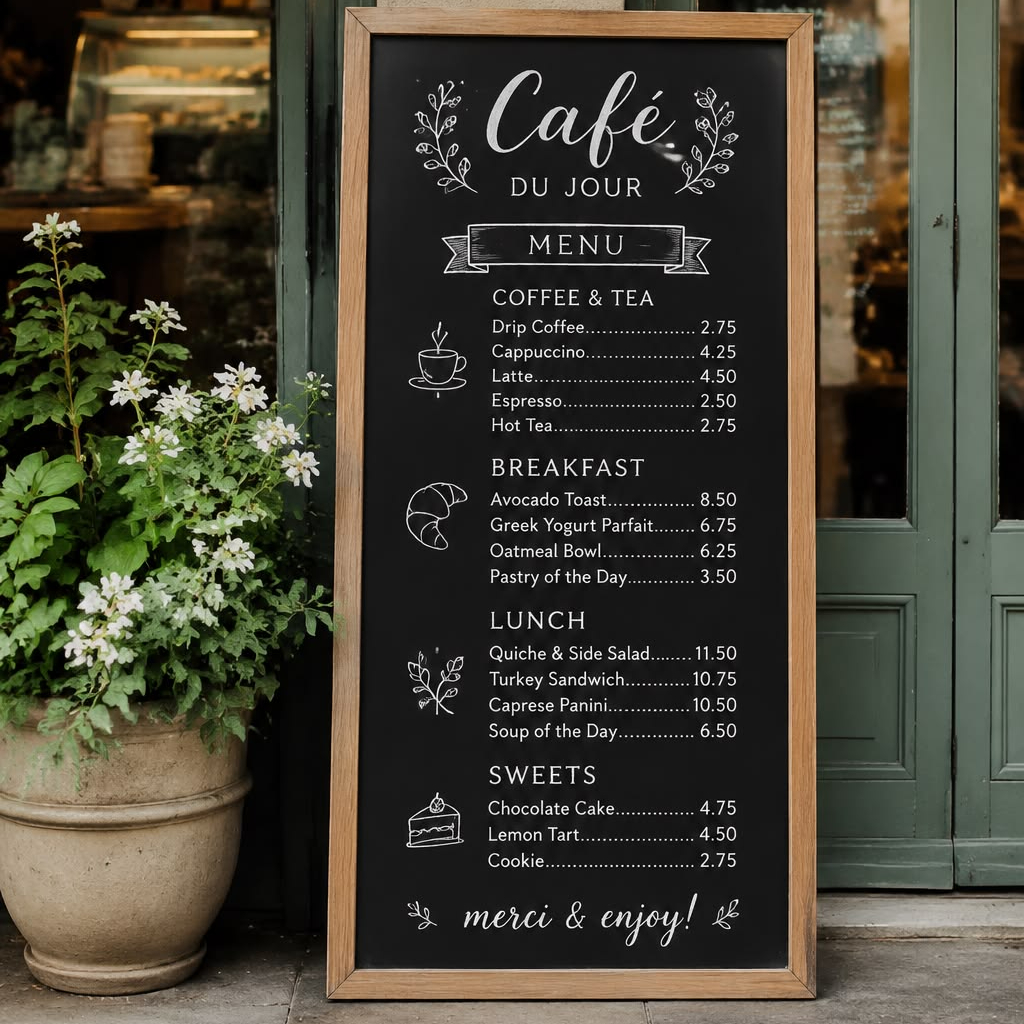 Café
DU JOUR
MENU
COFFEE & TEA
Drip Coffee...................... 2.75
Cappuccino...................... 4.25
Latte................................ 4.50
Espresso.......................... 2.50
Hot Tea............................ 2.75
BREAKFAST
Avocado Toast................. 8.50
Greek Yogurt Parfait........ 6.75
Oatmeal Bowl.................. 6.25
Pastry of the Day............. 3.50
LUNCH
Quiche & Side Salad........ 11.50
Turkey Sandwich............. 10.75
Caprese Panini................ 10.50
Soup of the Day.............. 6.50
SWEETS
Chocolate Cake................ 4.75
Lemon Tart....................... 4.50
Cookie.............................. 2.75
merci & enjoy!